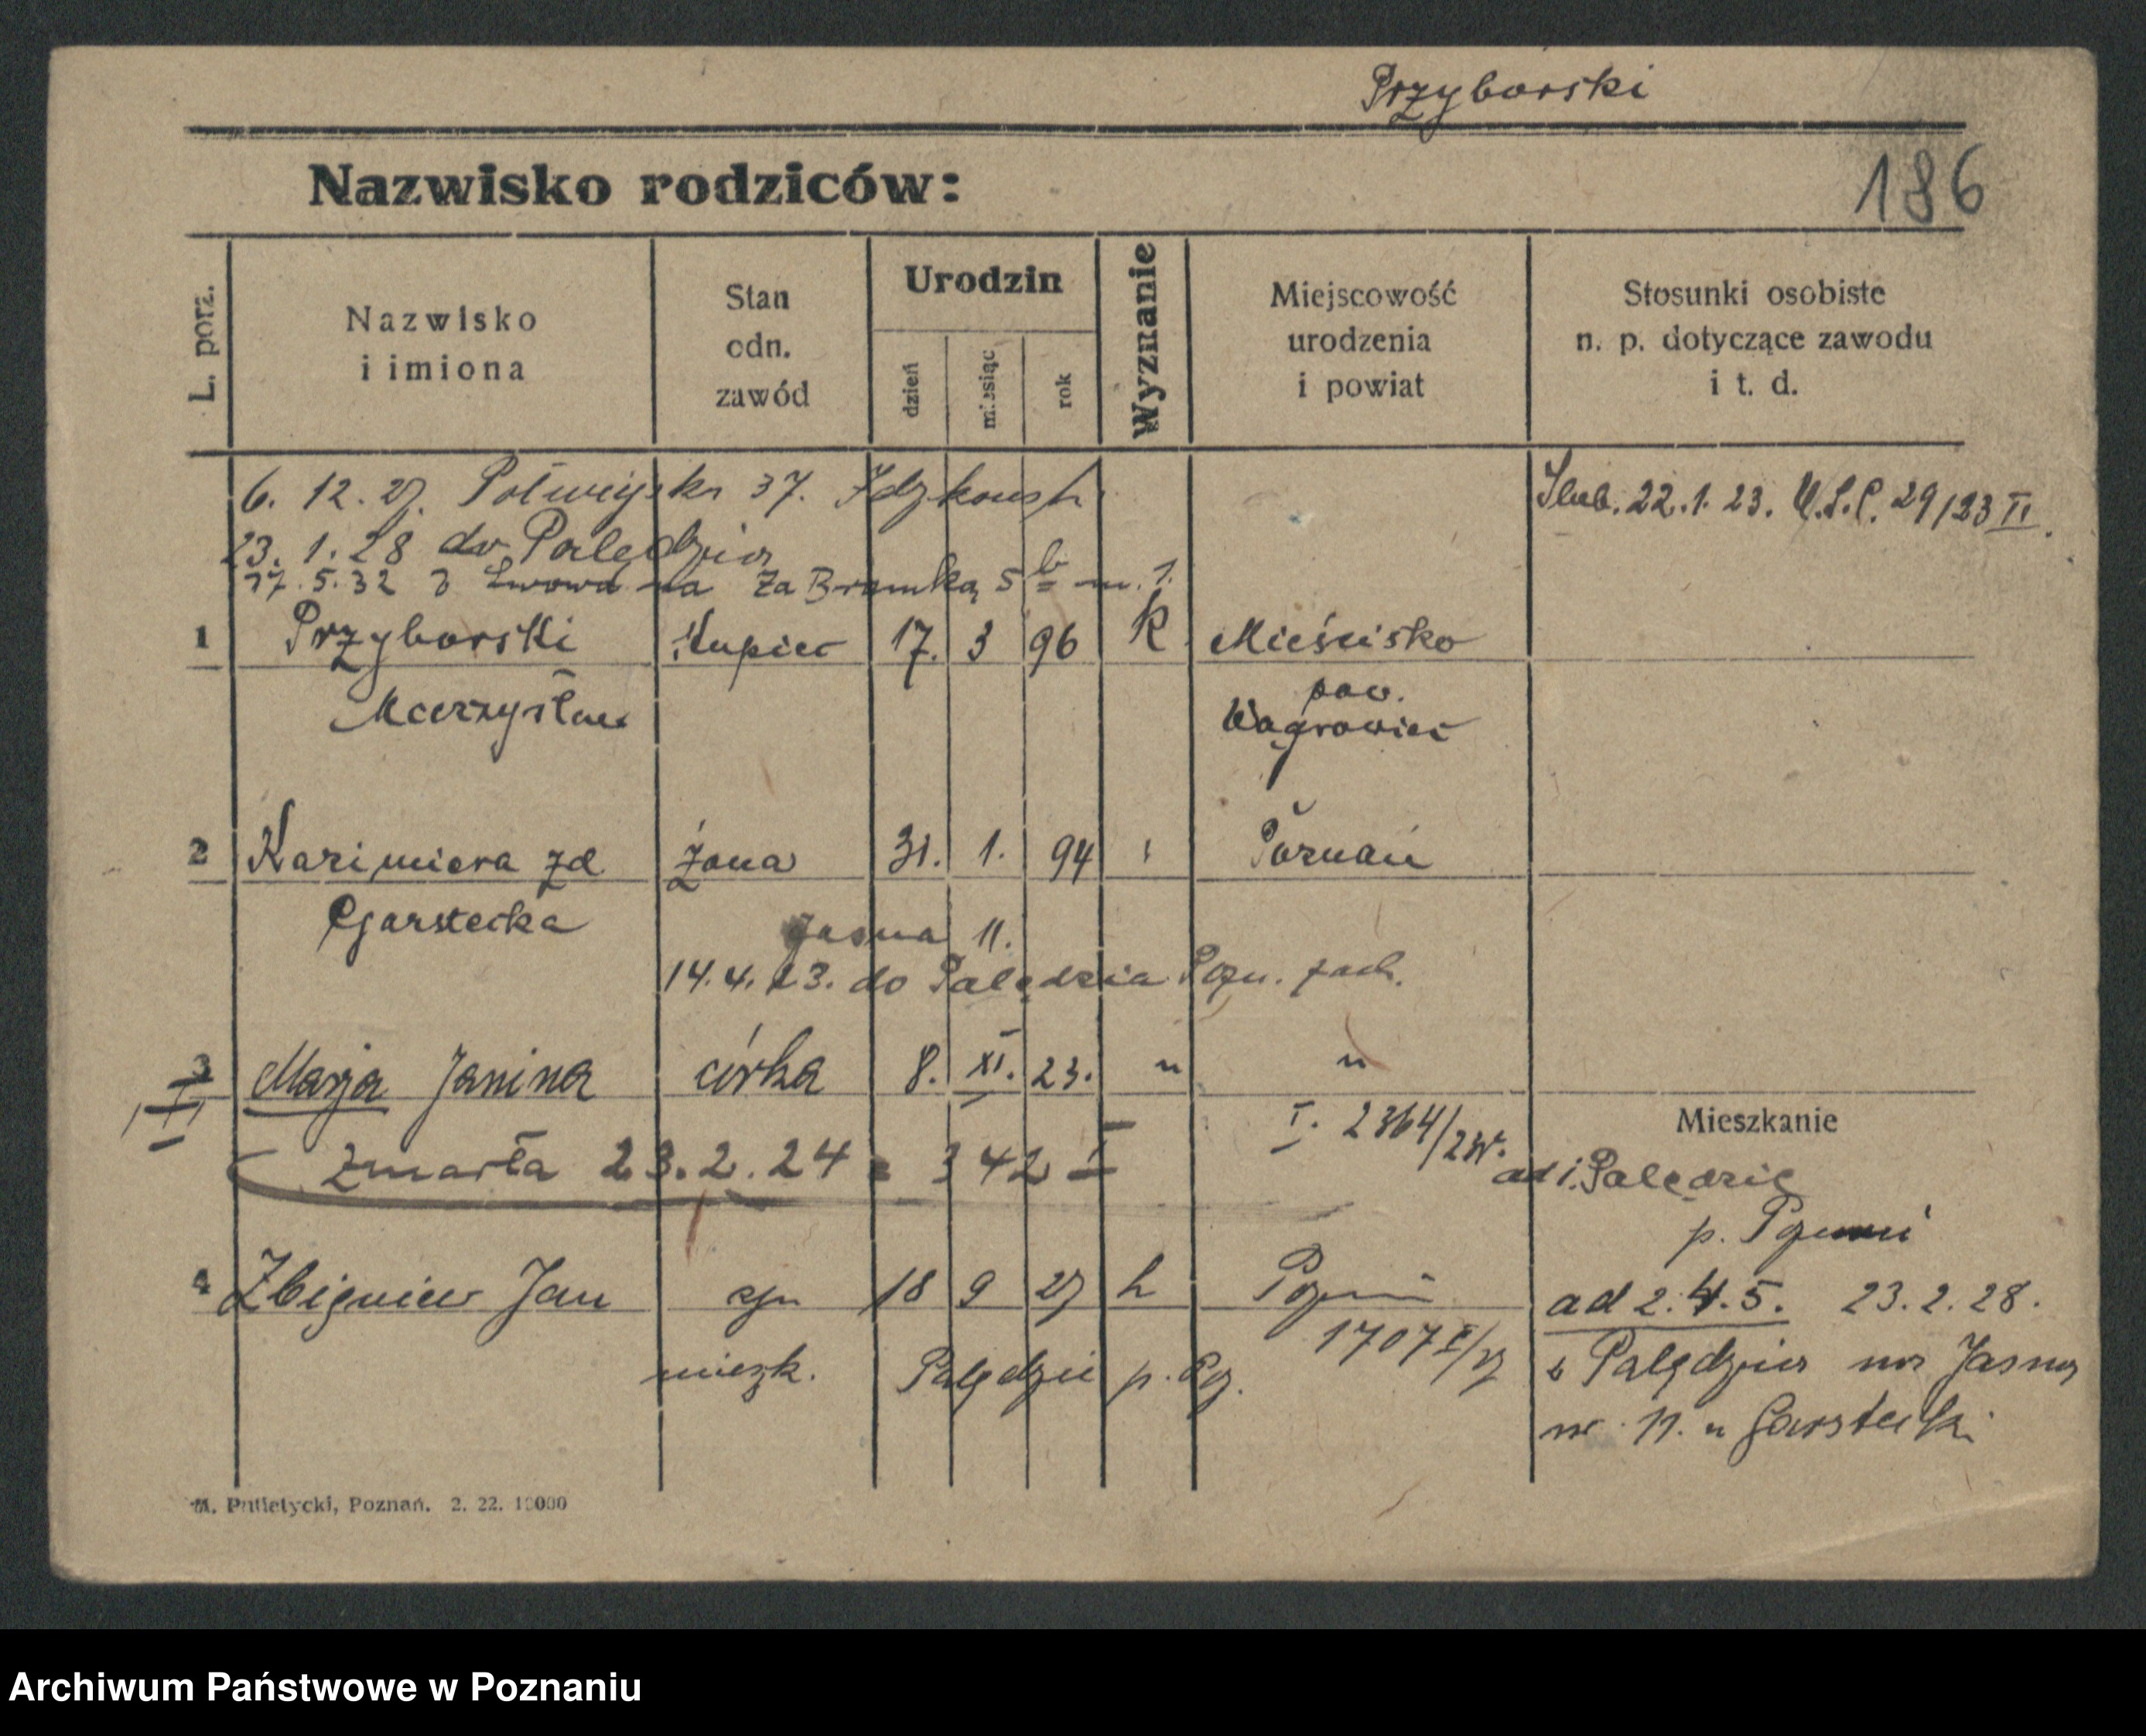 Przyborski
Nazwisko rodziców:
186
L. porz.
Nazwisko
i imiona
Stan
odn.
zawód
Urodzin
dzień
miesiąc
rok
Wyznanie
Miejscowość
urodzenia
i powiat
Stosunki osobiste
n. p. dotyczące zawodu
i t. d.
6. 12. 27. Półwiejska 37.
Ślub. 22. 1. 23. U.S.C. 29/23 II.
23. 1. 28 do Palędzia
17. 5. 32 z Lwowa na Za Bramką 5 b m. 1.
1 Przyborski Kupiec 17. 3 96 K Mieścisko
Mieczysław pow.
Wągrowiec
2 Kazimiera zd. żona 31. 1. 94 Poznań
Garstecka
Jasna 11.
14. 4. 23. do Palędzia Pozn. zach.
3 Marja Janina córka 8. XI. 23. " "
I. 2364/23
Mieszkanie
zmarła 23. 2. 24 = 342 I
ad 1. Palędzie
p. Poznań
4 Zbigniew Jan syn 18 9 27 k Poznań
1707 I/27
ad 2. 4. 5. 23. 2. 28.
mieszk. Palędzie p. Pozn.
z Palędzia na Jasną
nr 11. u Garstecki
M. Putiatycki, Poznań. 2. 22. 10000
Archiwum Państwowe w Poznaniu